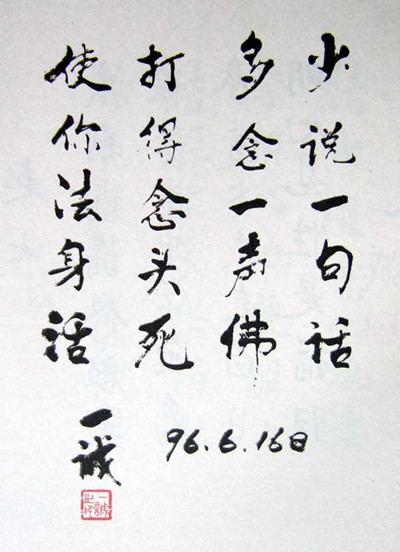 少说一句话
多念一声佛
打得念头死
使你法身活
96.6.16日
一诚